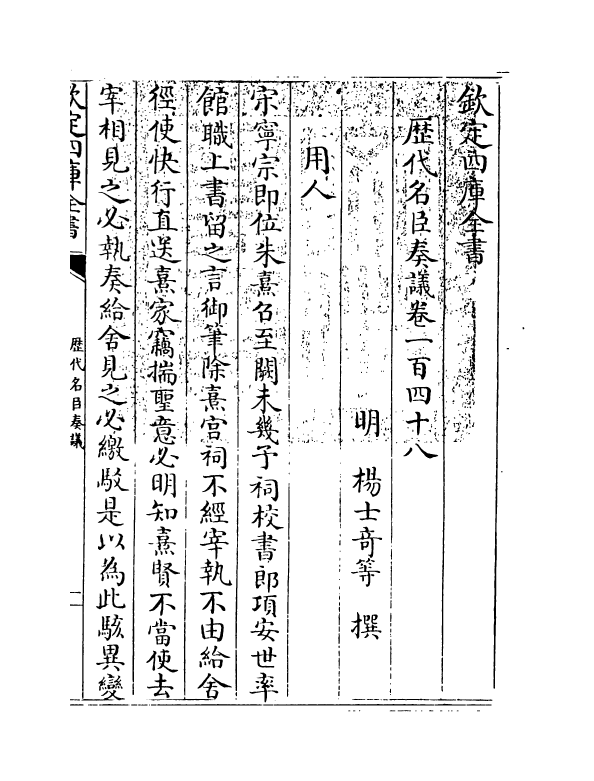 欽定四庫全書
歷代名臣奏議卷一百四十八
明 楊士奇等 撰
用人
宋寧宗即位朱熹召至闕未幾予祠校書郎項安世率
館職上書留之言御筆除熹宮祠不經宰執不由給舍
徑使快行直送熹家竊揣聖意必明知熹賢不當使去
宰相見之必執奏給舍見之必繳駮是以為此駭異變
欽定四庫全書
歷代名臣奏議
一